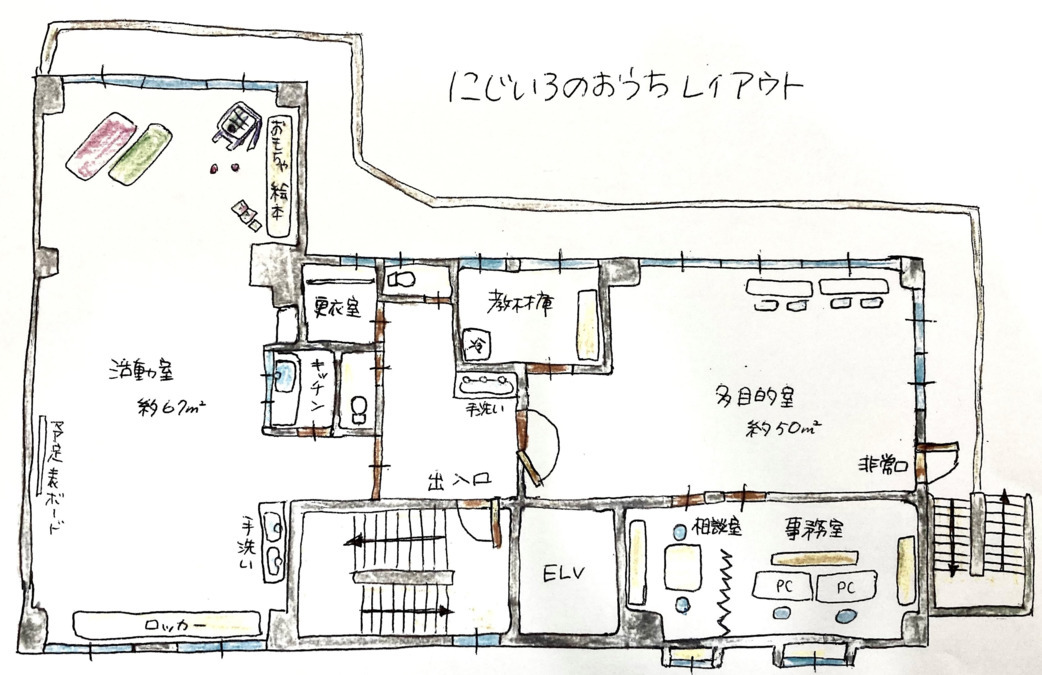 にじいろのおうちレイアウト
おもちゃ 絵本
更衣室
教材庫
冷
活動室
約67㎡
キッチン
手洗い
多目的室
約50㎡
予定表ボード
出入口
非常口
手洗い
相談室
事務室
ELV
PC
PC
ロッカー